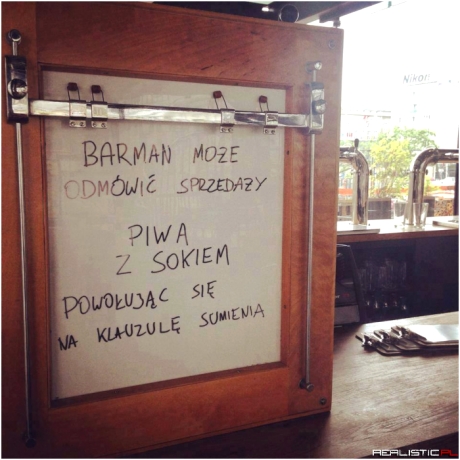 Nikon
BARMAN MOŻE
ODMÓWIĆ SPRZEDAŻY
PIWA
Z SOKIEM
POWOŁUJĄC SIĘ
NA KLAUZULĘ SUMIENIA
REALISTIC.PL